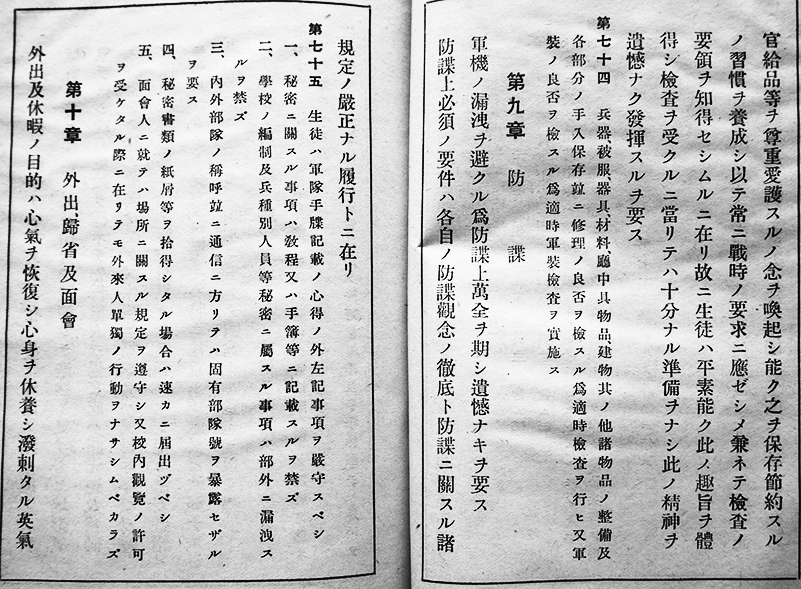 官給品等ヲ尊重愛護スルノ念ヲ喚起シ能ク之ヲ保存節約スル
ノ習慣ヲ養成シ以テ常ニ戰時ノ要求ニ應ゼシメ兼ネテ檢査ノ
要領ヲ知得セシムルニ在リ故ニ生徒ハ平素能ク此ノ趣旨ヲ體
得シ檢査ヲ受クルニ當リテハ十分ナル準備ヲナシ此ノ精神ヲ
遺憾ナク發揮スルヲ要ス
第七十四 兵器、被服、器具、材料、廳中具、物品、建物其ノ他諸物品ノ整備及
各部分ノ手入保存竝ニ修理ノ良否ヲ檢スル爲適時檢査ヲ行ヒ又軍
裝ノ良否ヲ檢スル爲適時軍裝檢査ヲ實施ス
第九章 防諜
軍機ノ漏洩ヲ避クル爲防諜上萬全ヲ期シ遺憾ナキヲ要ス
防諜上必須ノ要件ハ各自ノ防諜觀念ノ徹底ト防諜ニ關スル諸
規定ノ嚴正ナル履行トニ在リ
第七十五 生徒ハ軍隊手牒記載ノ心得ノ外左記事項ヲ嚴守スベシ
一、秘密ニ關スル事項ハ敎程又ハ手簿等ニ記載スルヲ禁ズ
二、學校ノ編制及兵種別人員等秘密ニ屬スル事項ハ部外ニ漏洩ス
ルヲ禁ズ
三、內外部隊ノ稱呼竝ニ通信ニ方リテハ固有部隊號ヲ暴露セザル
ヲ要ス
四、秘密書類ノ紙屑等ヲ拾得シタル場合ハ速カニ屆出ヅベシ
五、面會人ニ就テハ場所ニ關スル規定ヲ遵守シ又校內觀覽ノ許可
ヲ受ケタル際ニ在リテモ外來人單獨ノ行動ヲナサシムベカラズ
第十章 外出、歸省及面會
外出及休暇ノ目的ハ心氣ヲ恢復シ心身ヲ休養シ潑剌タル英氣